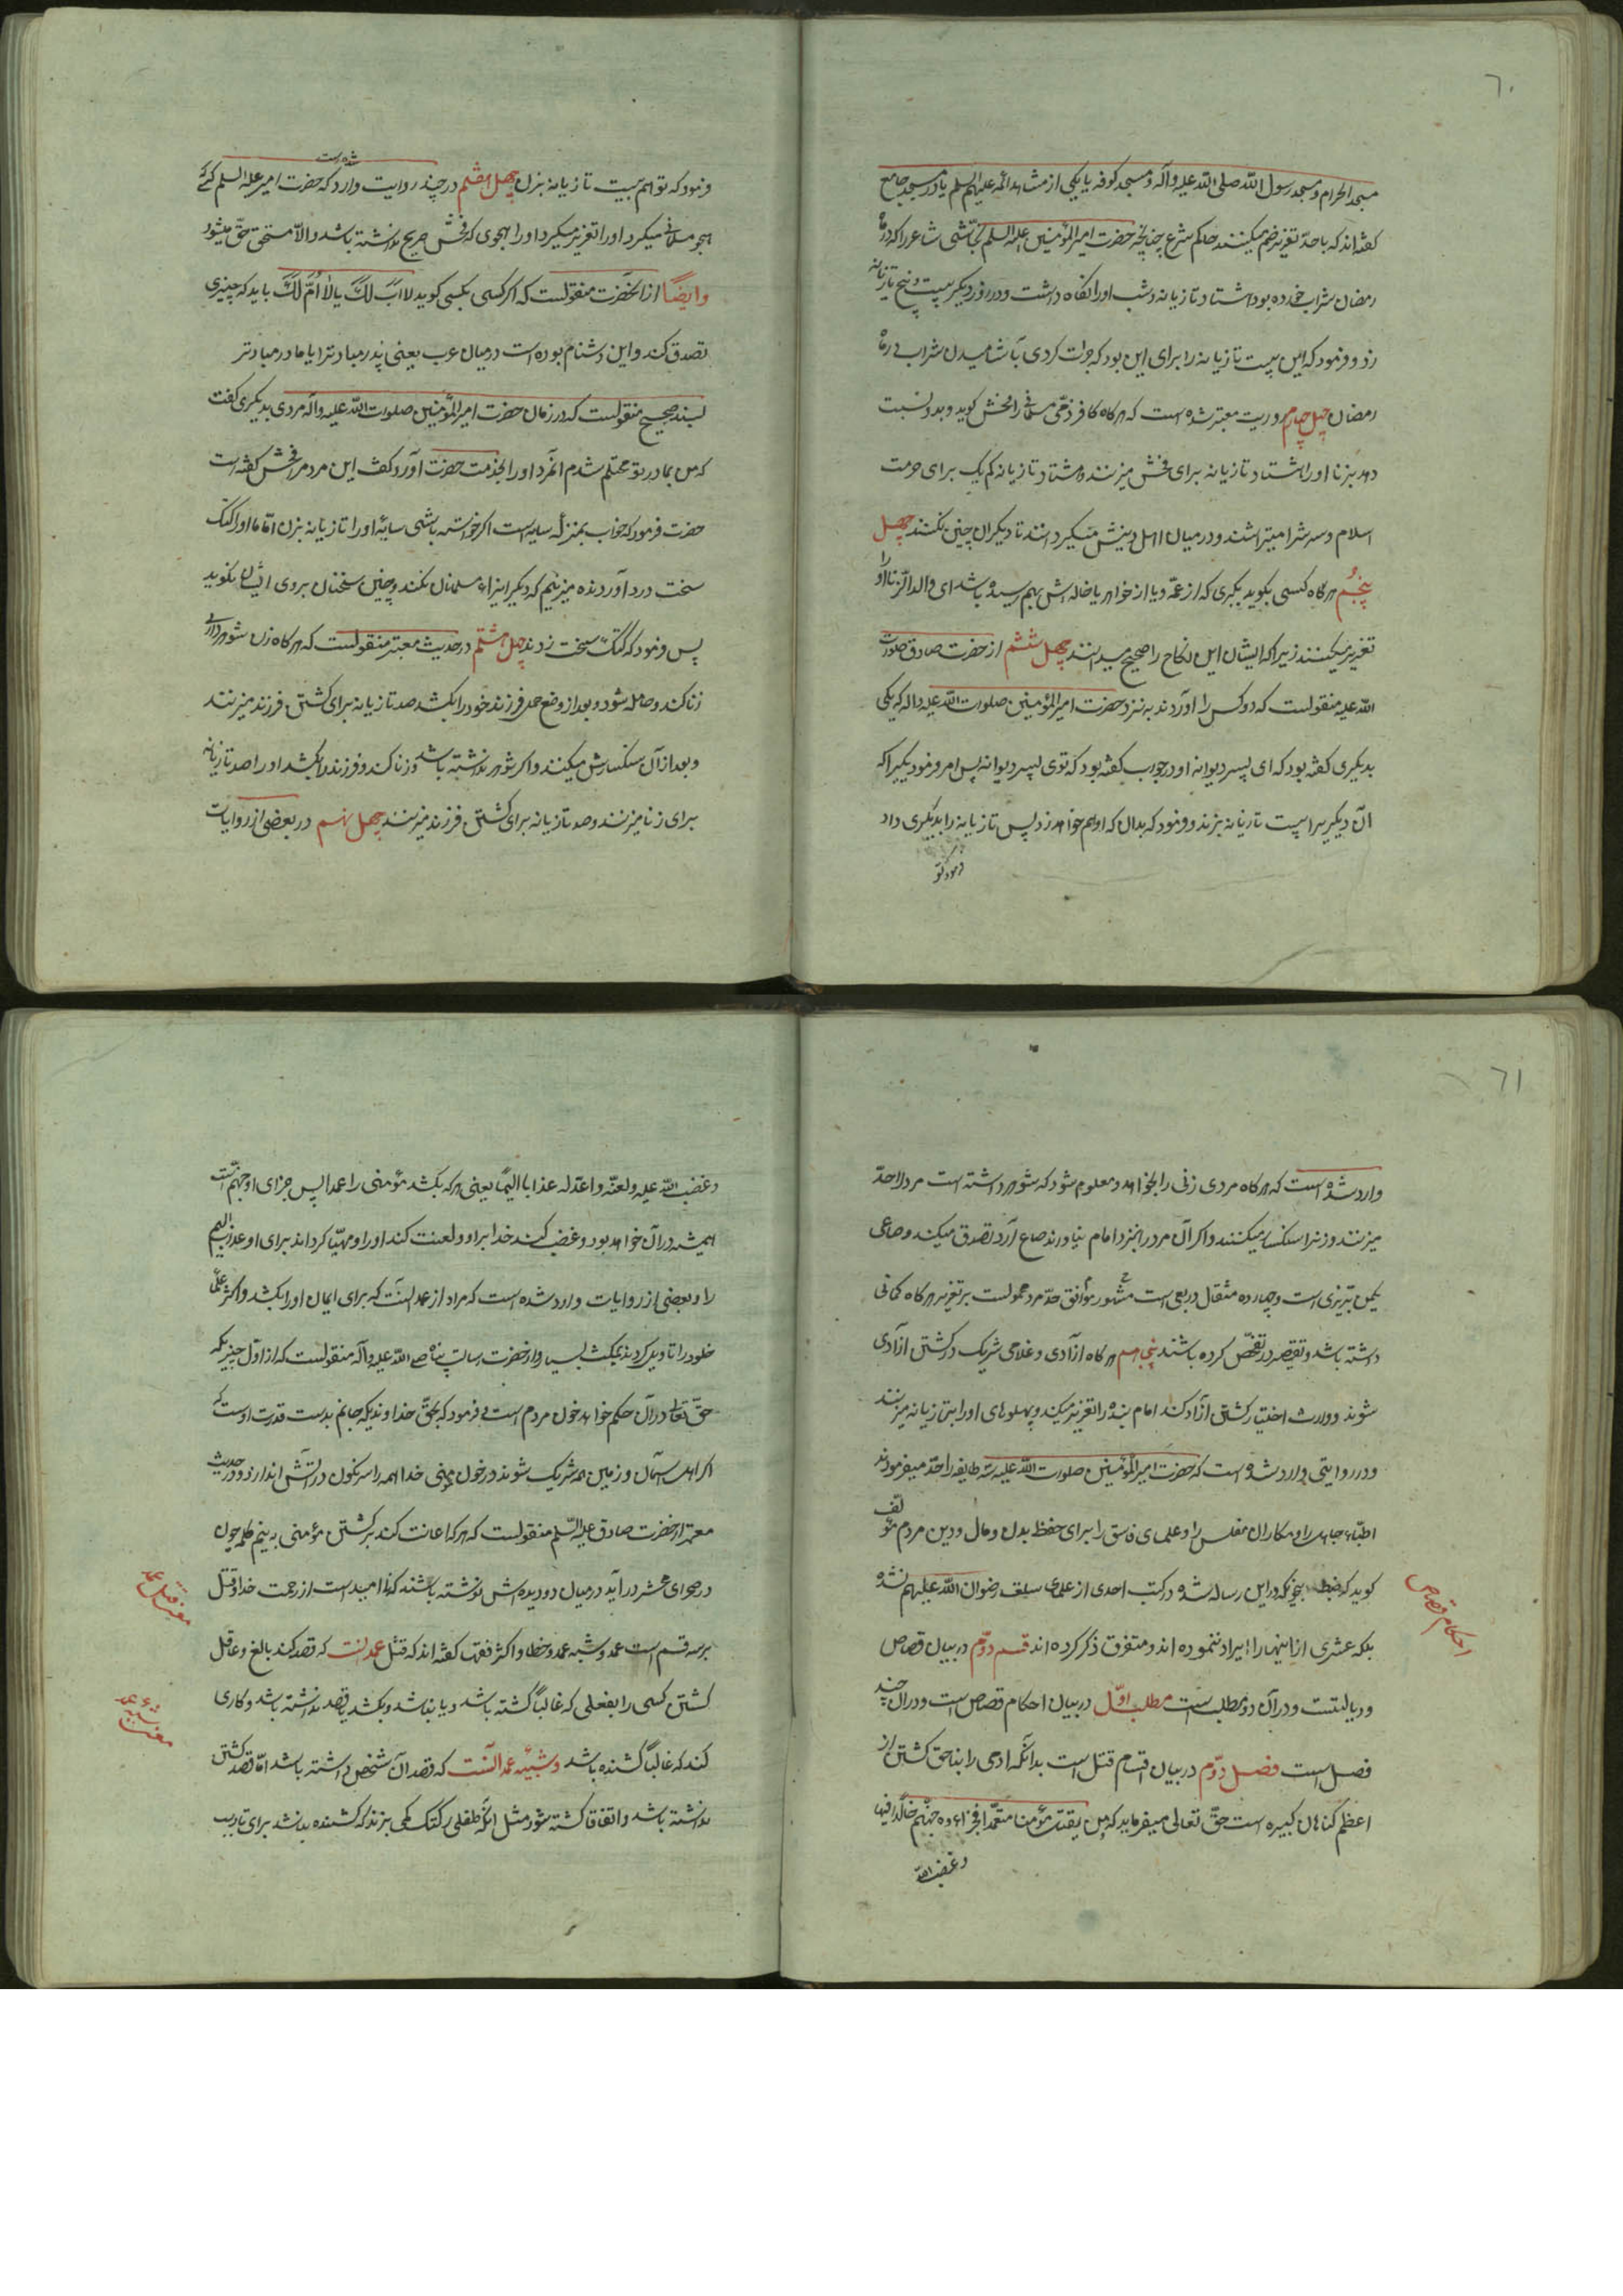 ٦٠
مسجد الحرام و مسجد رسول الله صلی الله علیه و آله و مسجد کوفه یا یکی از مشاهد ائمه علیهم السلم یا در مسجد جامع
کفته‌اند که با حدّ تعزیر ضم میکنند حاکم شرع چنانچه حضرت امیر المؤمنین علیه السلم نجاشی شاعر را که در ماه
رمضان شراب خورده بود هشتاد تازیانه و شب او را نکاه داشت و در روز دیکر بیست و پنج تازیانه
زد و فرمود که این بیست تازیانه را برای این بود که جرات کردی بآشامیدن شراب در ماه
رمضان چهل چهارم در روایت معتبر شده است که هرکاه کافر ذمّی مسلمانی را فحش کوید و بد و نسبت
دهد بزنا او را هشتاد تازیانه برای فحش میزنند و هشتاد تازیانه کم یک برای حرمت
اسلام و سرش را میتراشند و در میان اهل دینش میکردانند تا دیکران چنین نکنند چهل
پنجم هرکاه کسی بکوید بکبری که از عمّه و یا از خواهر یا خاله‌اش بهم رسیده باشد ای والد الزنا او را
تعزیر میکنند زیرا که ایشان این نکاح را صحیح میدانند چهل ششم از حضرت صادق صلوات
الله علیه منقولست که دو کس را آوردند به نزد حضرت امیر المؤمنین صلوات الله علیه و اله که یکی
بدیکری کفته بود که ای پسر دیوانه او در جواب کفته بود که توی پسر دیوانه پس امر فرمود یکیرا که
آن دیکریرا بیست تازیانه بزند و فرمود که بدان که او هم خواهد زد پس تازیانه را بدیکری داد
فرمود که تو
فرمود که تو هم بیست تازیانه بزن چهل هفتم در چند روایت وارد شده است که حضرت امیر علیه السلم کسی که
هجو مسلمانی میکرد او را تعزیر میکرد او را هجوی که فحش صریح نداشته باشد والّا مستحق حدّ میشود
وایضاً از آنحضرت منقولست که اکر کسی بکسی کوید لا اب لک یا لا اُمّ لک باید که چیزی
تصدق کند و این دشنام بوده است در میان عرب یعنی پدر مباد ترا یا مادر مباد تر
بسند صحیح منقولست که در زمان حضرت امیر المؤمنین صلوات الله علیه و اله مردی بدیکری کفت
که من بمادر تو محتلم شدم آنمرد او را بخدمت حضرت آورد و کفت این مرد مرا فحش کفته است
حضرت فرمود که خواب بمنزله سایه است اکر خواسته باشی سایهٔ او را تازیانه بزن امّا ما او را کتک
سخت درد آورنده میزنیم که دیکر ایذاء مسلمانان نکند و چنین سخنان بروی ایشان نکوید
پس فرمود که کتک سخت زدند چهل هشتم در حدیث معتبر منقولست که هرکاه زن شوهرداری
زنا کند و حامله شود و بعد از وضع حمل فرزند خود را بکشد صد تازیانه برای کشتن فرزند میزنند
و بعد از آن سنکسارش میکنند و اکر شوهر نداشته باشد و زنا کند و فرزند را بکشد او را صد تازیانه
برای زنا میزنند و صد تازیانه برای کشتن فرزند میزنند چهل نهم در بعضی از روایات
٦١
وارد شده است که هرکاه مردی زنی را بخواهد و معلوم شود که شوهر داشته است مرد را حدّ
میزنند و زنرا سنکسار میکنند و اکر آن مرد را بنزد امام نیاورند صاع آرد تصدق میکند و صاعی
یکمن تبریزی است و چهارده مثقال و ربعی است مشهور موافق حدّ مرد محمولست بر تعزیر هرکاه کمانی
داشته باشد و تقصیر در تفحّص کرده باشند پنجاهم هرکاه آزادی و غلامی شریک در کشتن آزادی
شوند و وارث اختیار کشتن آزاد کند امام بنده را تعزیر میکند و پهلوهای او را بتازیانه میزنند
و در روایتی وارد شده است که حضرت امیر المؤمنین صلوات الله علیه سه طایفه را حدّ میفرمودند
اطبّاء جاهل را و مکاران مفلس را و علمای فاسق را برای حفظ بدن و مال و دین مردم مؤلف
کوید که ضبط بنحویکه در این رساله شده در کتب احدی از علمای سلف رضوان الله علیهم نشده
بلکه عشری از اینها را ایراد ننموده‌اند و متفرق ذکر کرده‌اند قسم دوّم در بیان قصاص
و دیاتست و در آن دو مطلب است مطلب اوّل در بیان احکام قصاص است و در آن چند
فصل است فصل دوّم در بیان اقسام قتل است بدانکه ادمی را بناحق کشتن از
اعظم کناهان کبیره است حقّ تعالی میفرماید که و من یقتل مؤمنا متعمّدا فجزاءه جهنّم خالدا فیها
و غضب الله
احکام قصاص
و غضب الله علیه و لعنه و اعدّ له عذابا الیمًا یعنی هرکه بکشد مؤمنی را عمدا پس جزای او جهنّم است
همیشه در آن خواهد بود و غضب کند خدا بر او و لعنت کند او را و مهیّا کرداند برای او عذاب الیم
را و بعضی از روایات وارد شده است که مراد از عمد آنست که برای ایمان او را بکشد و اکثر علما
خلود را تاویل کرده‌اند بمکث بسیار و از حضرت رسالت پناه صلی الله علیه و آله منقولست که از اوّل چیزیکه
حقّ تعالی در آن حکم خواهد خون مردم است و فرمود که بحقّ خداوندیکه جانم بدست قدرت اوست که
اکر اهل سمان و زمین همه شریک شوند در خون مؤمنی خدا همه را سرنکون در آتش اندازد و در حدیث
معتمد از حضرت صادق علیه السّلم منقولست که هرکه اعانت کند بر کشتن مؤمنی به نیم کلمه چون
در صحرای محشر در آید در میان دو دیده‌اش نوشته باشند که نا امید است از رحمت خدا و قتل
بر سه قسم است عمد و شبه عمد و خطا و اکثر فقها کفته‌اند که قتل عمد آنست که قصد کند بالغ و عاقل
کشتن کسی را بفعلی که غالباً کشته باشد و یا نباشد و بکشد یا قصد نداشته باشد و کاری
کند که غالباً کشنده باشد و شبیه عمد آنست که قصد آن شخص داشته باشد امّا قصد کشتن
نداشته باشد و اتفاقا کشته شود مثل انکه طفلی را کتک کمی بزند که کشنده نباشد برای تادیب
معنی قتل عمد
معنی شبیه عمد